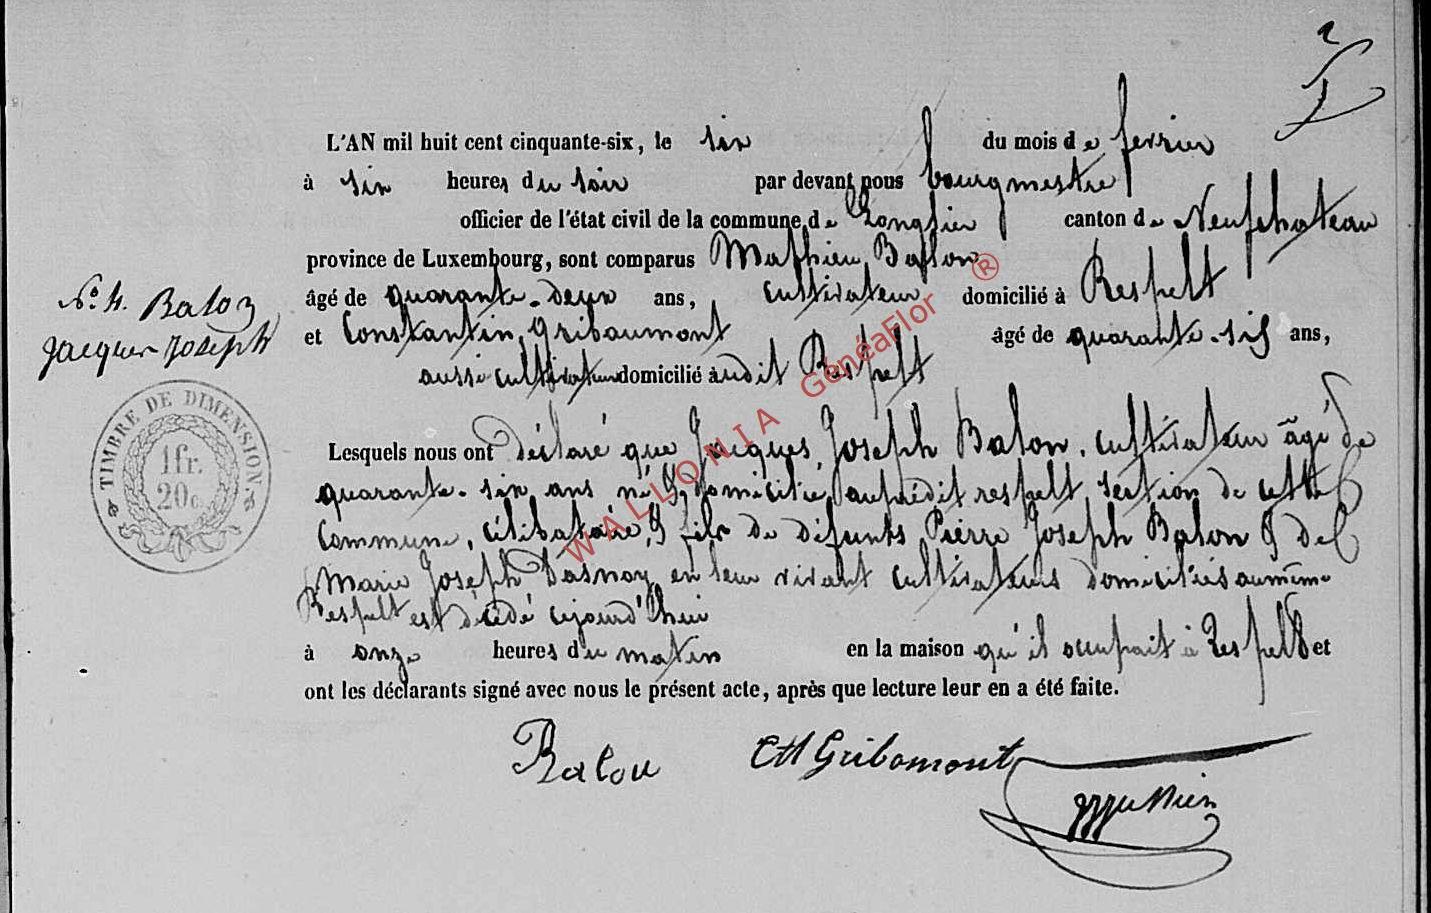 L'AN mil huit cent cinquante-six, le six du mois de fevrier
à six heures du soir par devant nous bourgmestre
officier de l'état civil de la commune de Longlier canton de Neufchateau
province de Luxembourg, sont comparus Mathieu Balon
âgé de quarante-deux ans, cultivateur domicilié à Respelt
et Constantin Gribaumont âgé de quarante-six ans,
aussi cultivateur domicilié audit Respelt
No. 4. Balon
Jacques Joseph
TIMBRE DE DIMENSION
1fr.
20c.
Lesquels nous ont déclaré que Jacques Joseph Balon, cultivateur âgé de
quarante-six ans né & domicilié au prédit respelt, section de cette
Commune, célibataire, & fils de defunts Pierre Joseph Balon & de
Marie Joseph Dasnoy en leur vivant cultivateurs domiciliés au même
Respelt est décédé cejourd'hui
à onze heures du matin en la maison qu'il occupait à Respelt et
ont les déclarants signé avec nous le présent acte, après que lecture leur en a été faite.
Balon CH Gribomont
WALLONIA GénéaFlor ®